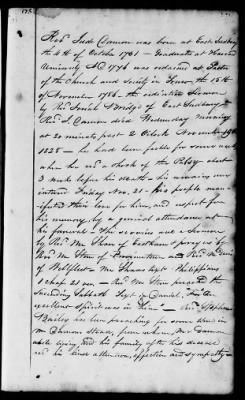 Revd Jude Damon was born at East Sudbury
the 4th of October 1751 — Graduated at Harvard
University AD 1776 was ordained as Pastor
of the Church and Society in Truro the 15th
of November 1786. the ordination Sermon
by Revd Josiah Bridge of East Sudbury —
Revd J. Damon died Wednesday morning
at 20 minutes past 2 Oclock November 19th
1828 — he had been feeble for some
when he had a shock of the Palsey about
3 weeks before his death — his remains were
intered Friday Nov. 21 — His people man
ifested their love for him, and respect for
his memory, by a general attendance at
his funeral — The services were a Sermon
by Revd Mr Shaw of Eastham prayers by
Revd Mr Stone of Provincetown and Revd Mr
of Wellfleet — Mr Shaws text Philippians
1 chap 21 ver — Revd Mr Stone preached the
Succeeding Sabbath text in Daniel, An
excellent Spirit was in him — Revd Stephen
Bailey has been preaching for some time in
Mr Damons Stead, from when Mr Damon
while living, and his family, after his decease
his kind attention, affection and sympathy —